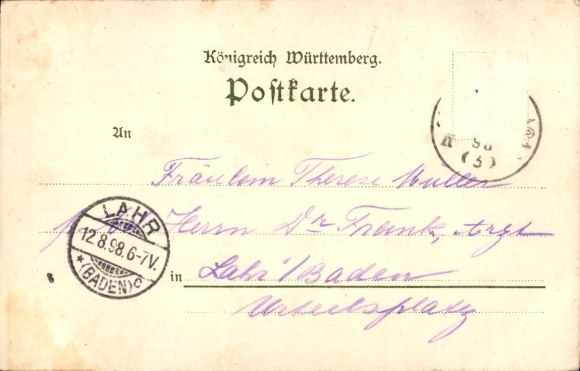 Königreich Württemberg.
Postkarte.
An
98
(3)
Fräulein Therese Müller
Herrn Dr Frank, Arzt
LAHR
12.8.98.6-7V.
*(BADEN)
in Lahr / Baden
Urteilsplatz